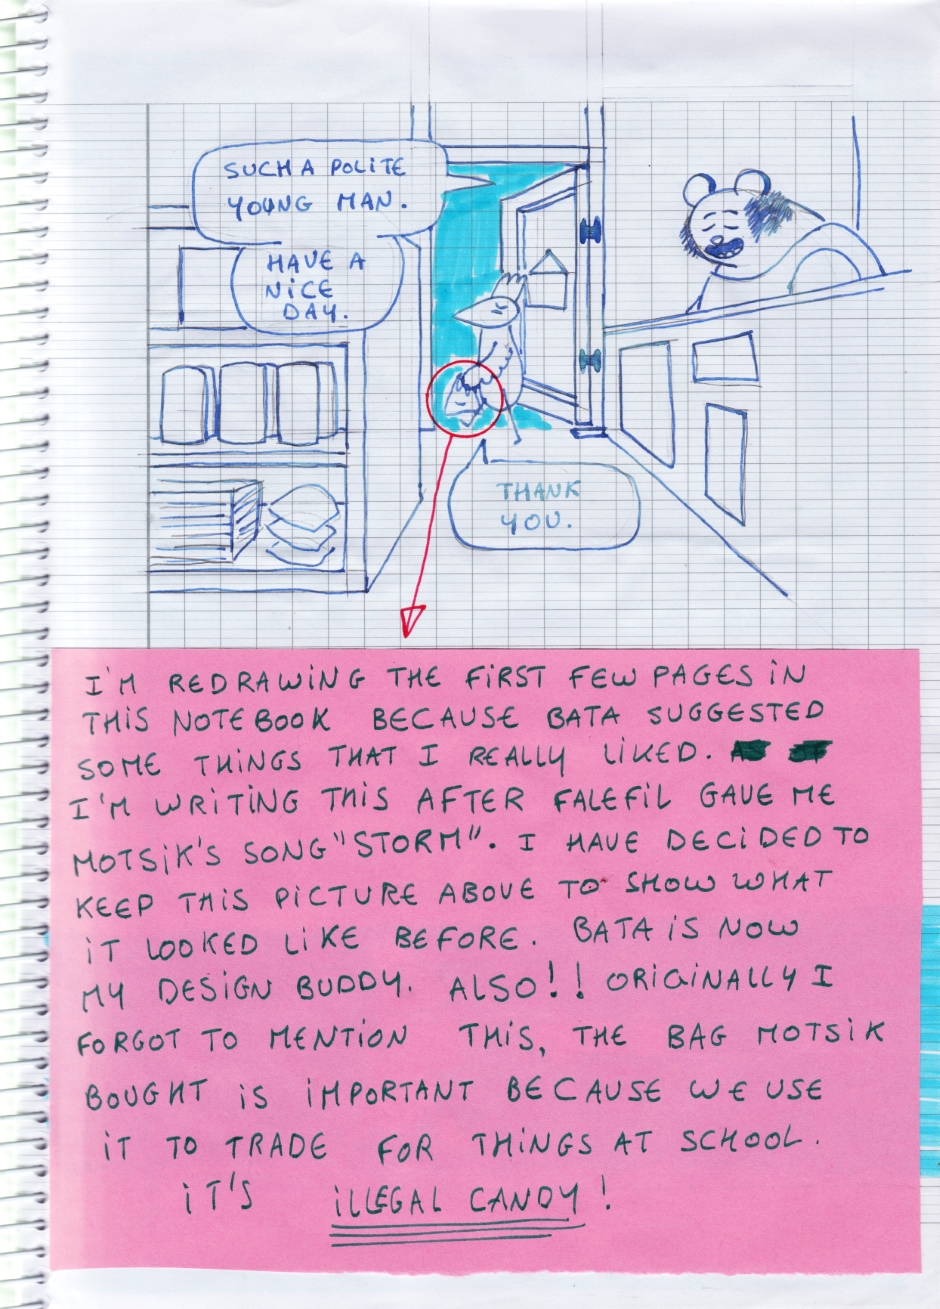 SUCH A POLITE
YOUNG MAN.
HAVE A
NICE
DAY.
THANK
YOU.
I'M REDRAWING THE FIRST FEW PAGES IN
THIS NOTEBOOK BECAUSE BATA SUGGESTED
SOME THINGS THAT I REALLY LIKED.
I'M WRITING THIS AFTER FALEFIL GAVE ME
MOTSIK'S SONG "STORM". I HAVE DECIDED TO
KEEP THIS PICTURE ABOVE TO SHOW WHAT
IT LOOKED LIKE BEFORE. BATA IS NOW
MY DESIGN BUDDY. ALSO!! ORIGINALLY I
FORGOT TO MENTION THIS, THE BAG MOTSIK
BOUGHT IS IMPORTANT BECAUSE WE USE
IT TO TRADE FOR THINGS AT SCHOOL.
IT'S ILLEGAL CANDY!